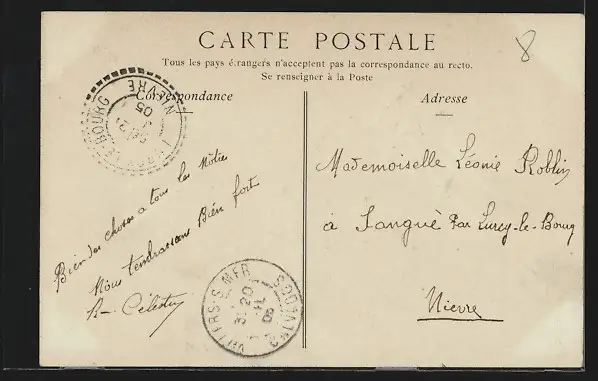 CARTE POSTALE
8
Tous les pays étrangers n'acceptent pas la correspondance au recto.
Se renseigner à la Poste
Correspondance
Adresse
BOURG NIÈVRE
05
Bien des choses a tous les Nôtres
Nous tembrassons Bien fort
Célestin
Mademoiselle Léonie Roblin
à Sangué Par Lurcy-le-Bourg
Nièvre
VILLERS-S-MER
20
05
CALVADOS